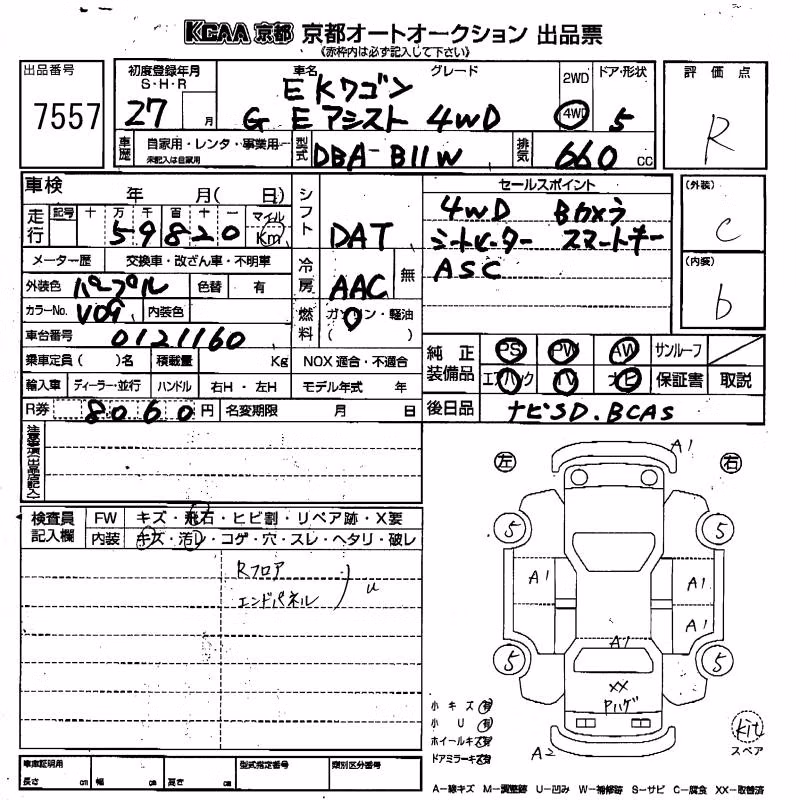 KCAA 京都 京都オートオークション 出品票
《赤枠内は必ず記入して下さい》
出品番号
7557
初度登録年月
S・H・R
27 月
車名 グレード
EKワゴン
G Eアシスト 4WD
2WD
4WD
ドア・形状
5
車歴 自家用・レンタ・事業用
未記入は自家用
型式 DBA-B11W
排気 660 CC
評価点
R
車検 年 月( 日)
走行 記号 十 万 千 百 十 一 マイル
59820 Km
メーター歴 交換車・改ざん車・不明車
外装色 パープル 色替 有
カラーNo. V09 内装色
車台番号 0121160
乗車定員( )名 積載量 Kg
輸入車 ディーラー・並行 ハンドル 右H・左H
R券 8060 円 名変期限 月 日
シフト DAT
冷房 AAC 無
燃料 ガソリン・軽油
( )
NOX適合・不適合
モデル年式 年
セールスポイント
4WD Bカメラ
シートヒーター スマートキー
ASC
(外装)
C
(内装)
b
純正装備品 PS PW AW サンルーフ
エアバック TV ナビ 保証書 取説
後日品 ナビSD.BCAS
注意事項(出品店記入)
検査員記入欄 FW キズ・飛石・ヒビ割・リペア跡・X要
内装 キズ・汚レ・コゲ・穴・スレ・ヘタリ・破レ
Rフロア
エンドパネル
u
左 右
A1
5 5
A1 A1
A1
A1
5 5
XX
Pハゲ
A2
小キズ 有
小U 有
ホイールキズ 有
ドアミラーキズ 有
kit
スペア
車庫証明用
長さ cm 幅 cm 高さ cm
型式指定番号
類別区分番号
A-線キズ M-調整跡 U-凹み W-補修跡 S-サビ C-腐食 XX-取替済